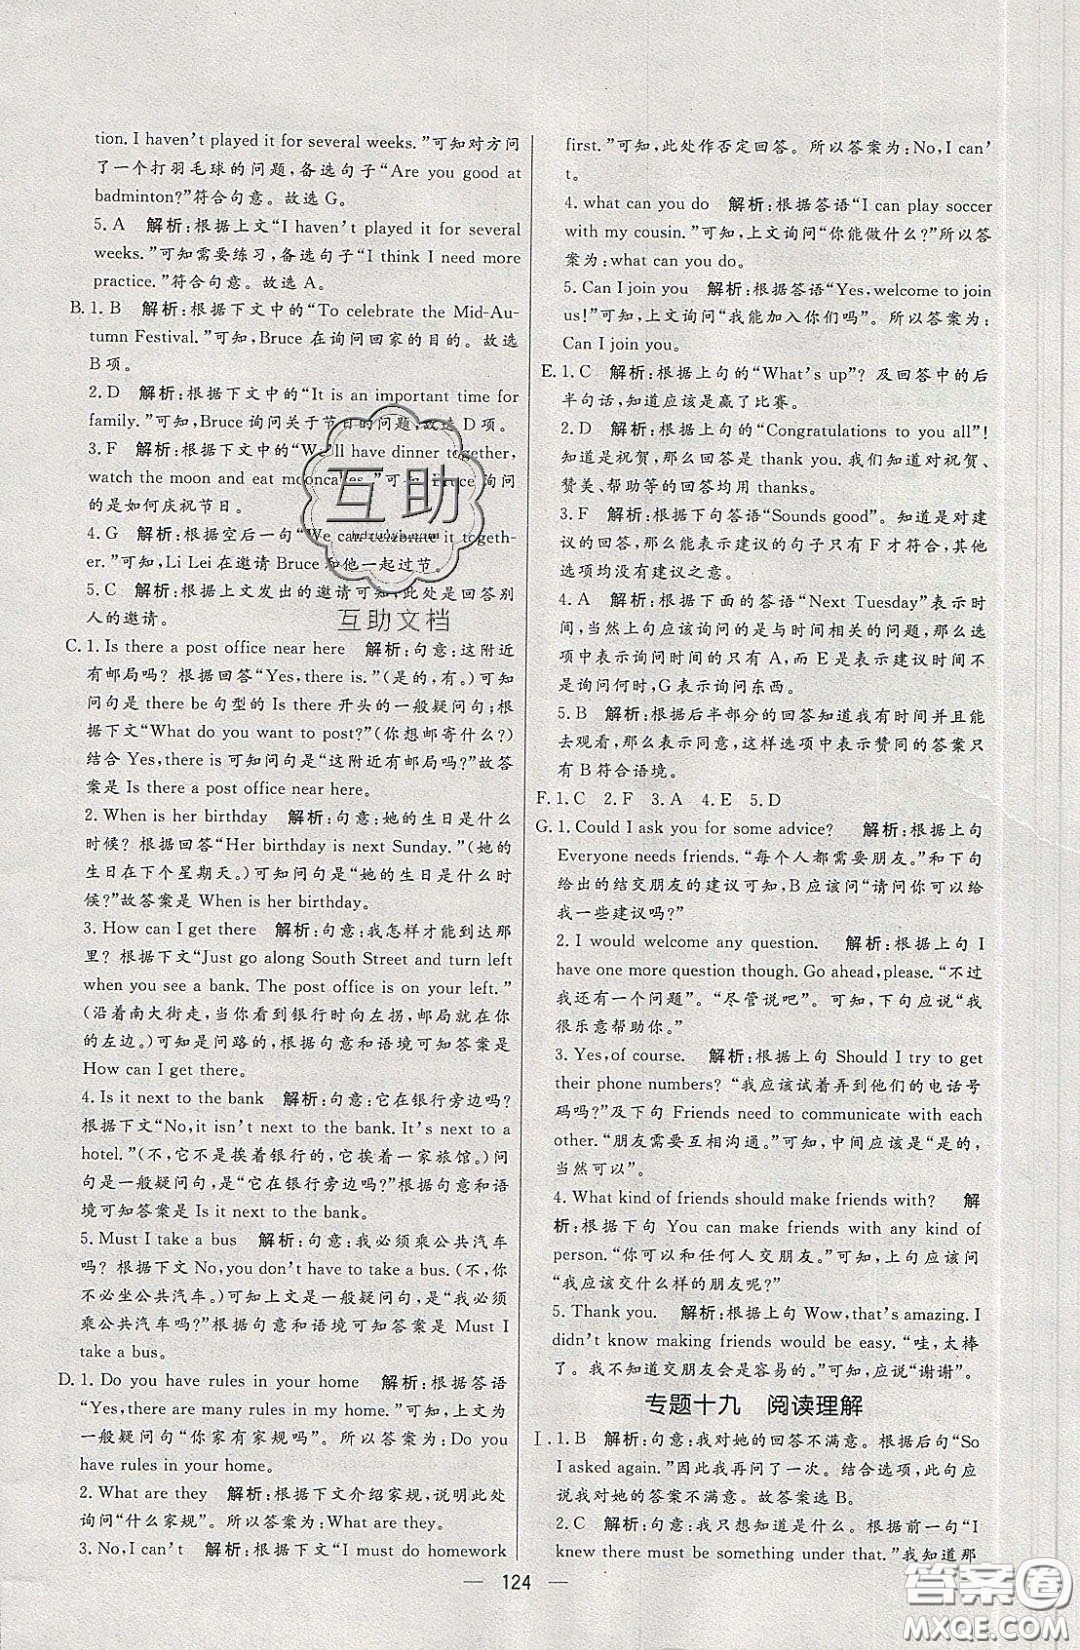 tion. I haven't played it for several weeks."可知对方问
了一个打羽毛球的问题,备选句子"Are you good at
badminton?"符合句意。故选 G。
5. A 解析:根据上文"I haven't played it for several
weeks."可知需要练习,备选句子"I think I need more
practice."符合句意。故选 A。
B. 1. B 解析:根据下文中的"To celebrate the Mid-Au-
tumn Festival."可知, Bruce 在询问回家的目的。故选
B 项。
2. D 解析:根据下文中的"It is an important time for
family."可知, Bruce 询问关于节日的问题,故选 D 项。
3. F 解析:根据下文中的"We'll have dinner together,
watch the moon and eat mooncakes."可知 Bruce 询问
的是如何庆祝节日。
4. G 解析:根据空后一句"We can celebrate it togeth-
er."可知, Li Lei 在邀请 Bruce 和他一起过节。
5. C 解析:根据上文发出的邀请可知,此处是回答别
人的邀请。
C. 1. Is there a post office near here 解析:句意:这附近
有邮局吗? 根据回答"Yes, there is."(是的,有。)可知
问句是 there be 句型的 Is there 开头的一般疑问句;根
据下文"What do you want to post?"(你想邮寄什么?)
结合 Yes, there is 可知问句是"这附近有邮局吗?"故答
案是 Is there a post office near here。
2. When is her birthday 解析:句意:她的生日是什么
时候? 根据回答"Her birthday is next Sunday."(她的
生日在下个星期天。)可知问句是"她的生日是什么时
候?"故答案是 When is her birthday。
3. How can I get there 解析:句意:我怎样才能到达那
里? 根据下文"Just go along South Street and turn left
when you see a bank. The post office is on your left."
(沿着南大街走,当你看到银行时向左拐,邮局就在你
的左边。)可知是问路的,根据句意和语境可知答案是
How can I get there。
4. Is it next to the bank 解析:句意:它在银行旁边吗?
根据下文"No, it isn't next to the bank. It's next to a
hotel."(不,它不是挨着银行的,它挨着一家旅馆。)问
句是一般疑问句,是"它在银行旁边吗?"根据句意和语
境可知答案是 Is it next to the bank。
5. Must I take a bus 解析:句意:我必须乘公共汽车
吗? 根据下文 No, you don't have to take a bus.(不,你
不必坐公共汽车。)可知上文是一般疑问句,是"我必须
乘公共汽车吗?"根据句意和语境可知答案是 Must I
take a bus。
D. 1. Do you have rules in your home 解析:根据答语
"Yes, there are many rules in my home."可知,上文为
一般疑问句"你家有家规吗"。所以答案为:Do you
have rules in your home。
2. What are they 解析:根据下文介绍家规,说明此处
询问"什么家规"。所以答案为:What are they。
3. No, I can't 解析:根据下文"I must do homework
first."可知,此处作否定回答。所以答案为:No, I can'
t。
4. what can you do 解析:根据答语"I can play soccer
with my cousin."可知,上文询问"你能做什么?"所以答
案为:what can you do。
5. Can I join you 解析:根据答语"Yes, welcome to join
us!"可知,上文询问"我能加入你们吗"。所以答案为:
Can I join you。
E. 1. C 解析:根据上句的"What's up"? 及回答中的后
半句话,知道应该是赢了比赛。
2. D 解析:根据上句的"Congratulations to you all"!
知道是祝贺,那么回答是 thank you. 我们知道对祝贺、
赞美、帮助等的回答均用 thanks。
3. F 解析:根据下句答语"Sounds good"。知道是对
建议的回答,那么能表示建议的句子只有 F 才符合,其他
选项均没有建议之意。
4. A 解析:根据下面的答语"Next Tuesday"表示时
间,当然上句应该询问的是与时间相关的问题,那么选
项中表示询问时间的只有 A,而 E 是表示建议时间不
是询问何时,G 表示询问东西。
5. B 解析:根据后半部分的回答知道我有时间并且能
去观看,那么表示同意,这样选项中表示赞同的答案只
有 B 符合语境。
F. 1. C 2. F 3. A 4. E 5. D
G. 1. Could I ask you for some advice? 解析:根据上句
Everyone needs friends. "每个人都需要朋友。"和下句
给出的结交朋友的建议可知,B 应该问"请问你能给
我一些建议吗?"
2. I would welcome any question. 解析:根据上句 I
have one more question though. Go ahead, please. "不过
我还有一个问题"。"尽管说吧"。可知,下句应说"我
很乐意帮助你。"
3. Yes, of course. 解析:根据上句 Should I try to get
their phone numbers? "我应该试着弄到他们的电话号
码吗?"及下句 Friends need to communicate with each
other. "朋友需要互相沟通。"可知,中间应该是"是的,
当然可以"。
4. What kind of friends should make friends with? 解
析:根据下句 You can make friends with any kind of
person. "你可以和任何人交朋友。"可知,上句应该问
"我应该交什么样的朋友呢?"
5. Thank you. 解析:根据上句 Wow, that's amazing. I
didn't know making friends would be easy. "哇,太棒
了。我不知道交朋友会是容易的。"可知,应说"谢谢"。
专题十九 阅读理解
Ⅰ. 1. B 解析:句意:我对她的回答不满意。根据后句"So
I asked again."因此我再问了一次。结合选项,此句应
说我对她的答案不满意。故答案选 B。
2. C 解析:句意:我只想知道是什么。根据前一句"I
knew there must be something under that."我知道那
— 124 —
互助
互助文档
答案圈
MXQE.COM